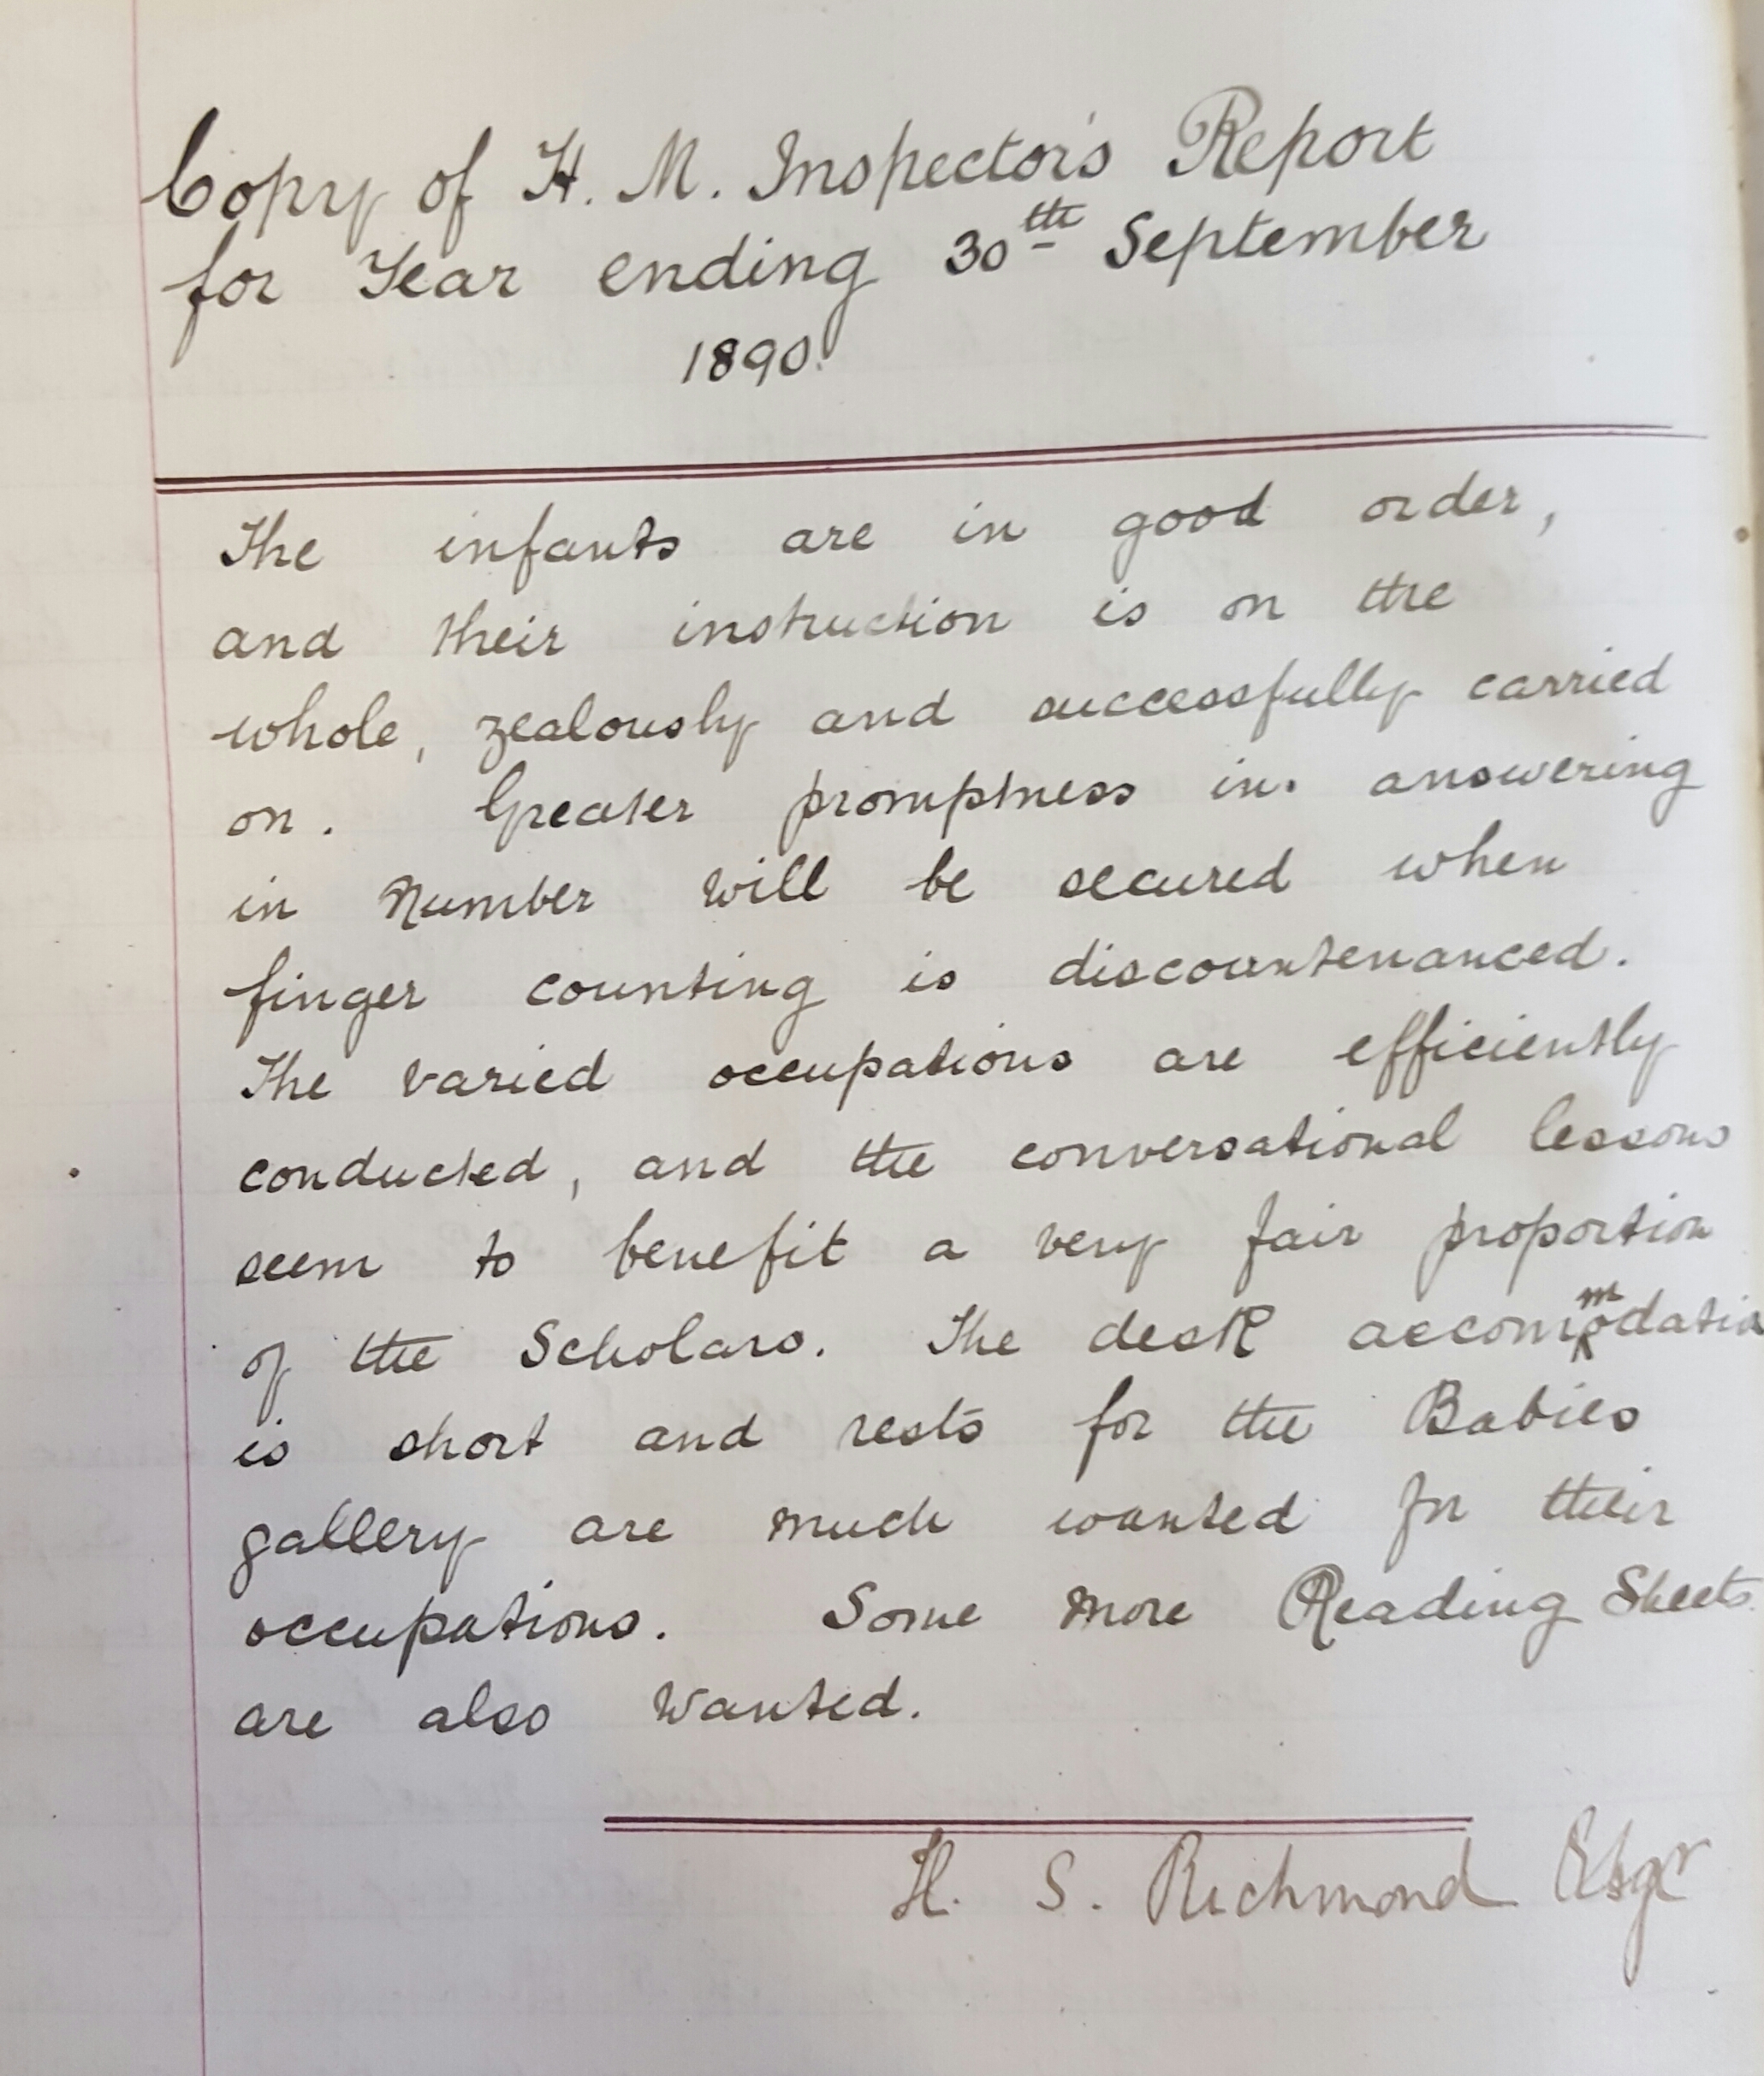 Copy of H. M. Inspector's Report
for Year ending 30th September
1890.
The infants are in good order,
and their instruction is on the
whole, zealously and successfully carried
on. Greater promptness in answering
in Number will be secured when
finger counting is discountenanced.
The varied occupations are efficiently
conducted, and the conversational lessons
seem to benefit a very fair proportion
of the Scholars. The desk accommodatio
is short and rests for the Babies
gallery are much wanted for their
occupations. Some more Reading Sheets
are also wanted.
H. S. Richmond Esqr